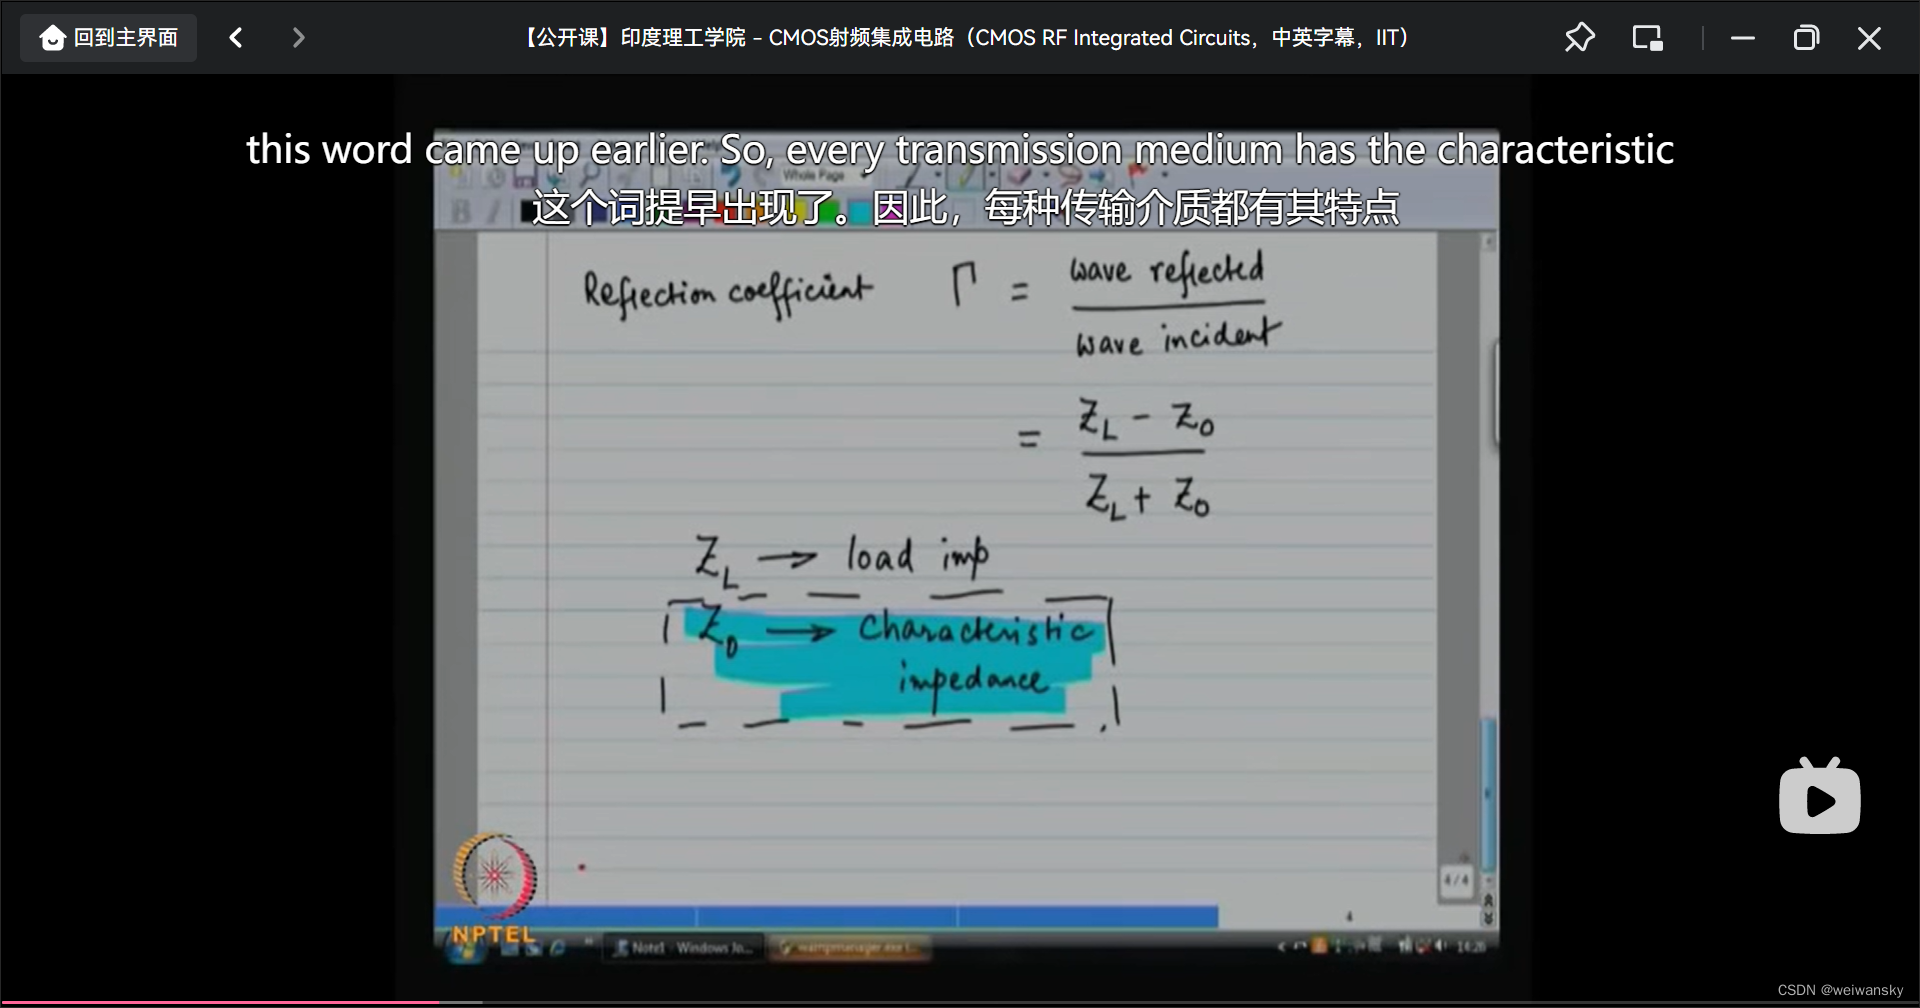 回到主界面
【公开课】印度理工学院 – CMOS射频集成电路（CMOS RF Integrated Circuits，中英字幕，IIT）
this word came up earlier. So, every transmission medium has the characteristic
Whole Page
这个词提早出现了。因此，每种传输介质都有其特点
Reflection coefficient Γ = wave reflected
wave incident
= ZL - Z0
ZL + Z0
ZL → load imp
Z0 → Characteristic
impedance
4/4
4
NPTEL
Note1 - Windows Jo...
14:26
CSDN @weiwansky